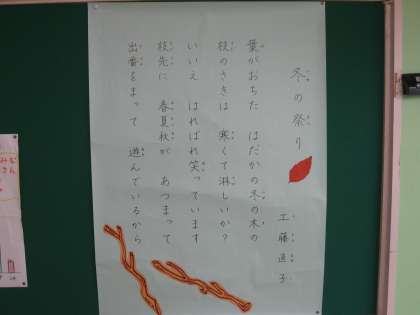 冬の祭り
工藤直子
葉がおちた　はだかの冬の木の
枝のさきは　寒くて淋しいか?
いいえ　はればれ笑っています
枝先に　春夏秋が　あつまって
出番をまって　遊んでいるから